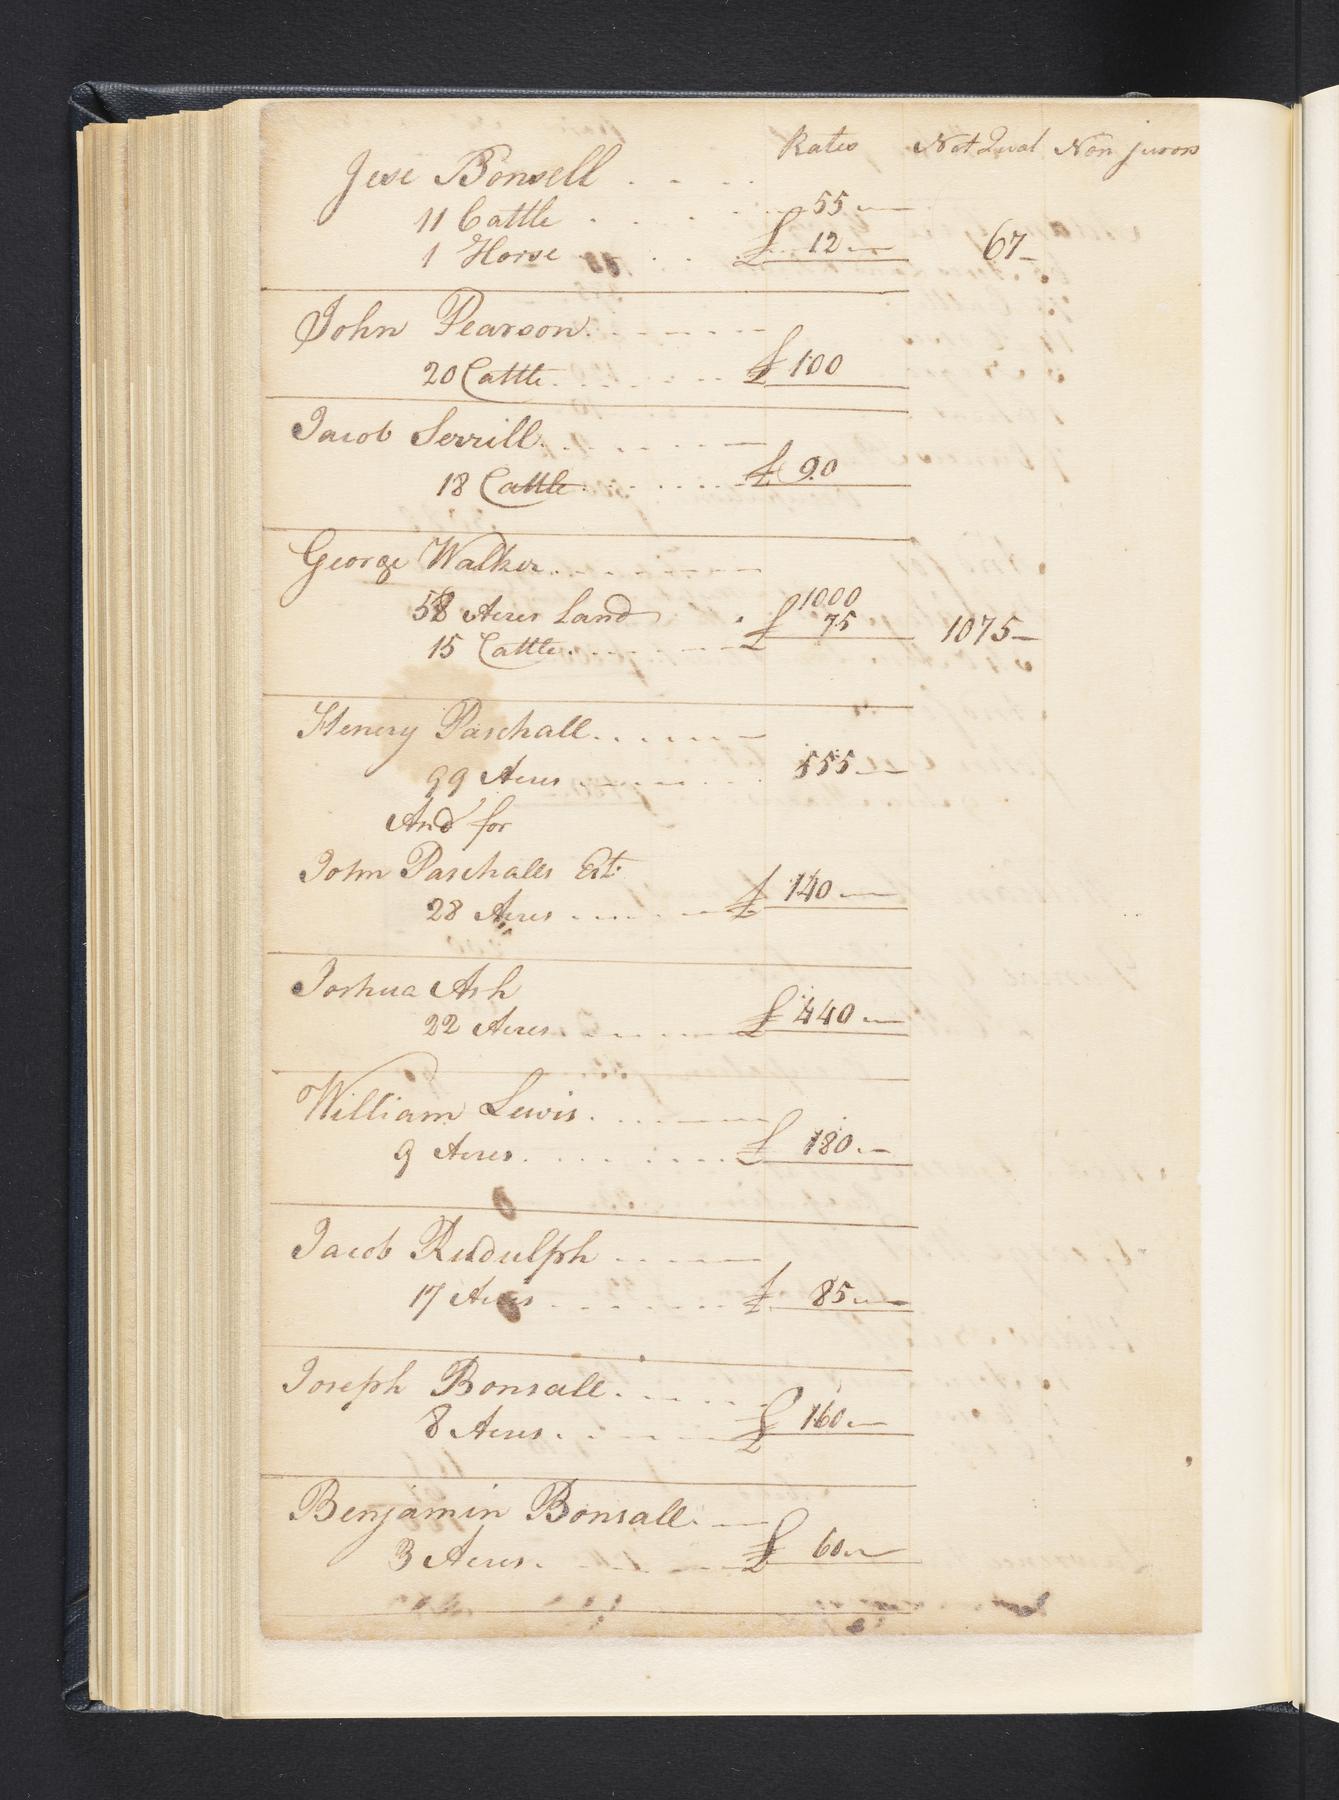 Rates Not Qual Non jurors
Jese Bonsell
11 Cattle 55
1 Horse £ 12 67
John Pearson
20 Cattle £ 100
Jacob Serrill
18 Cattle £ 90
George Walker
58 Acres Land 1000
15 Cattle £ 75 1075
Henery Paschall
99 Acres 555
And for
John Paschalls Est.
28 Acres £ 140
Joshua Ash
22 Acres £ 440
William Lewis
9 Acres £ 180
Jacob Rudulph
17 Acres £ 85
Joseph Bonsall
8 Acres £ 160
Benjamin Bonsall
3 Acres £ 60